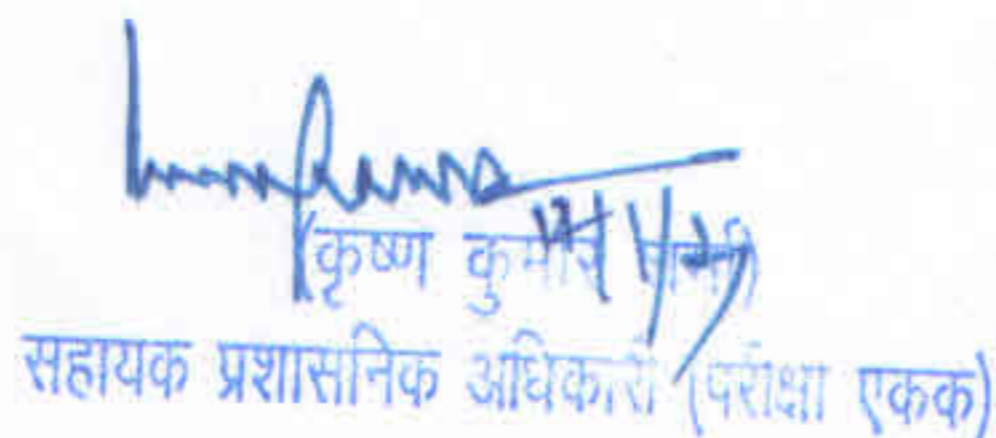 (कृष्ण कुमार शर्मा)
सहायक प्रशासनिक अधिकारी (परीक्षा एकक)